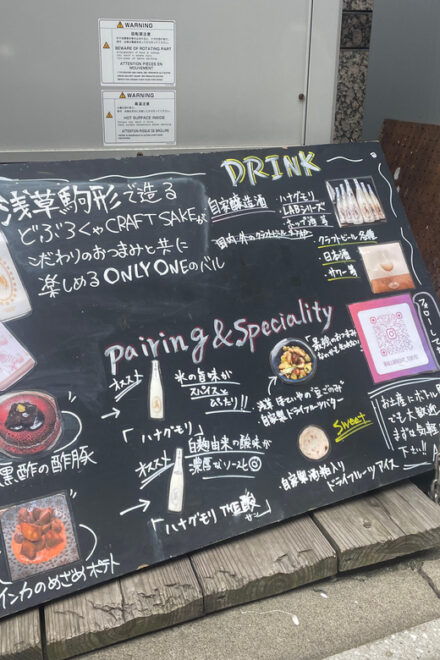 WARNING
回転部注意
BEWARE OF ROTATING PART
ATTENTION PIECES EN MOUVEMENT
WARNING
高温注意
HOT SURFACE INSIDE
ATTENTION PLAQUE DE BRULURE
浅草駒形で造る
どぶろくやCRAFT SAKEが
こだわりのおつまみと共に
楽しめるONLY ONEのバル
DRINK
自家醸造酒
ハナグモリ
LABシリーズ
クラフトビール各種
日本酒
サワー等
Pairing & Speciality
オススメ
米の旨味が
スパイスと
ぴったり!!
「ハナグモリ」
オススメ
白麹由来の酸味が
濃厚なソースと◎
「ハナグモリ THE酸
サン」
自家製ドライフルーツバター
Sweet
自家製酒粕入り
ドライフルーツアイス
フォローしてね
お土産にボトル
でも大歓迎
まずは気軽に
下さい!!
黒酢の酢豚
インカのめざめポテト